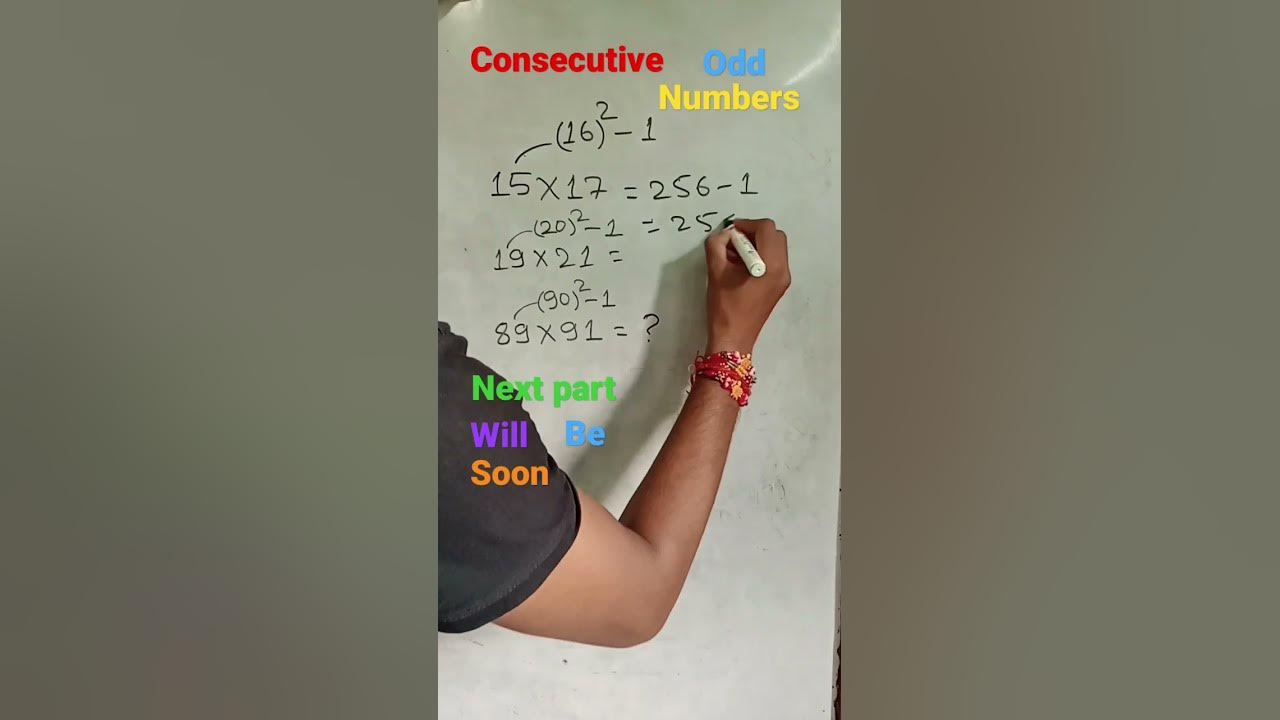 Consecutive Odd
Numbers
(16)² - 1
15 × 17 = 256 - 1
(20)² - 1 = 25
19 × 21 =
(90)² - 1
89 × 91 = ?
Next part
Will Be
Soon